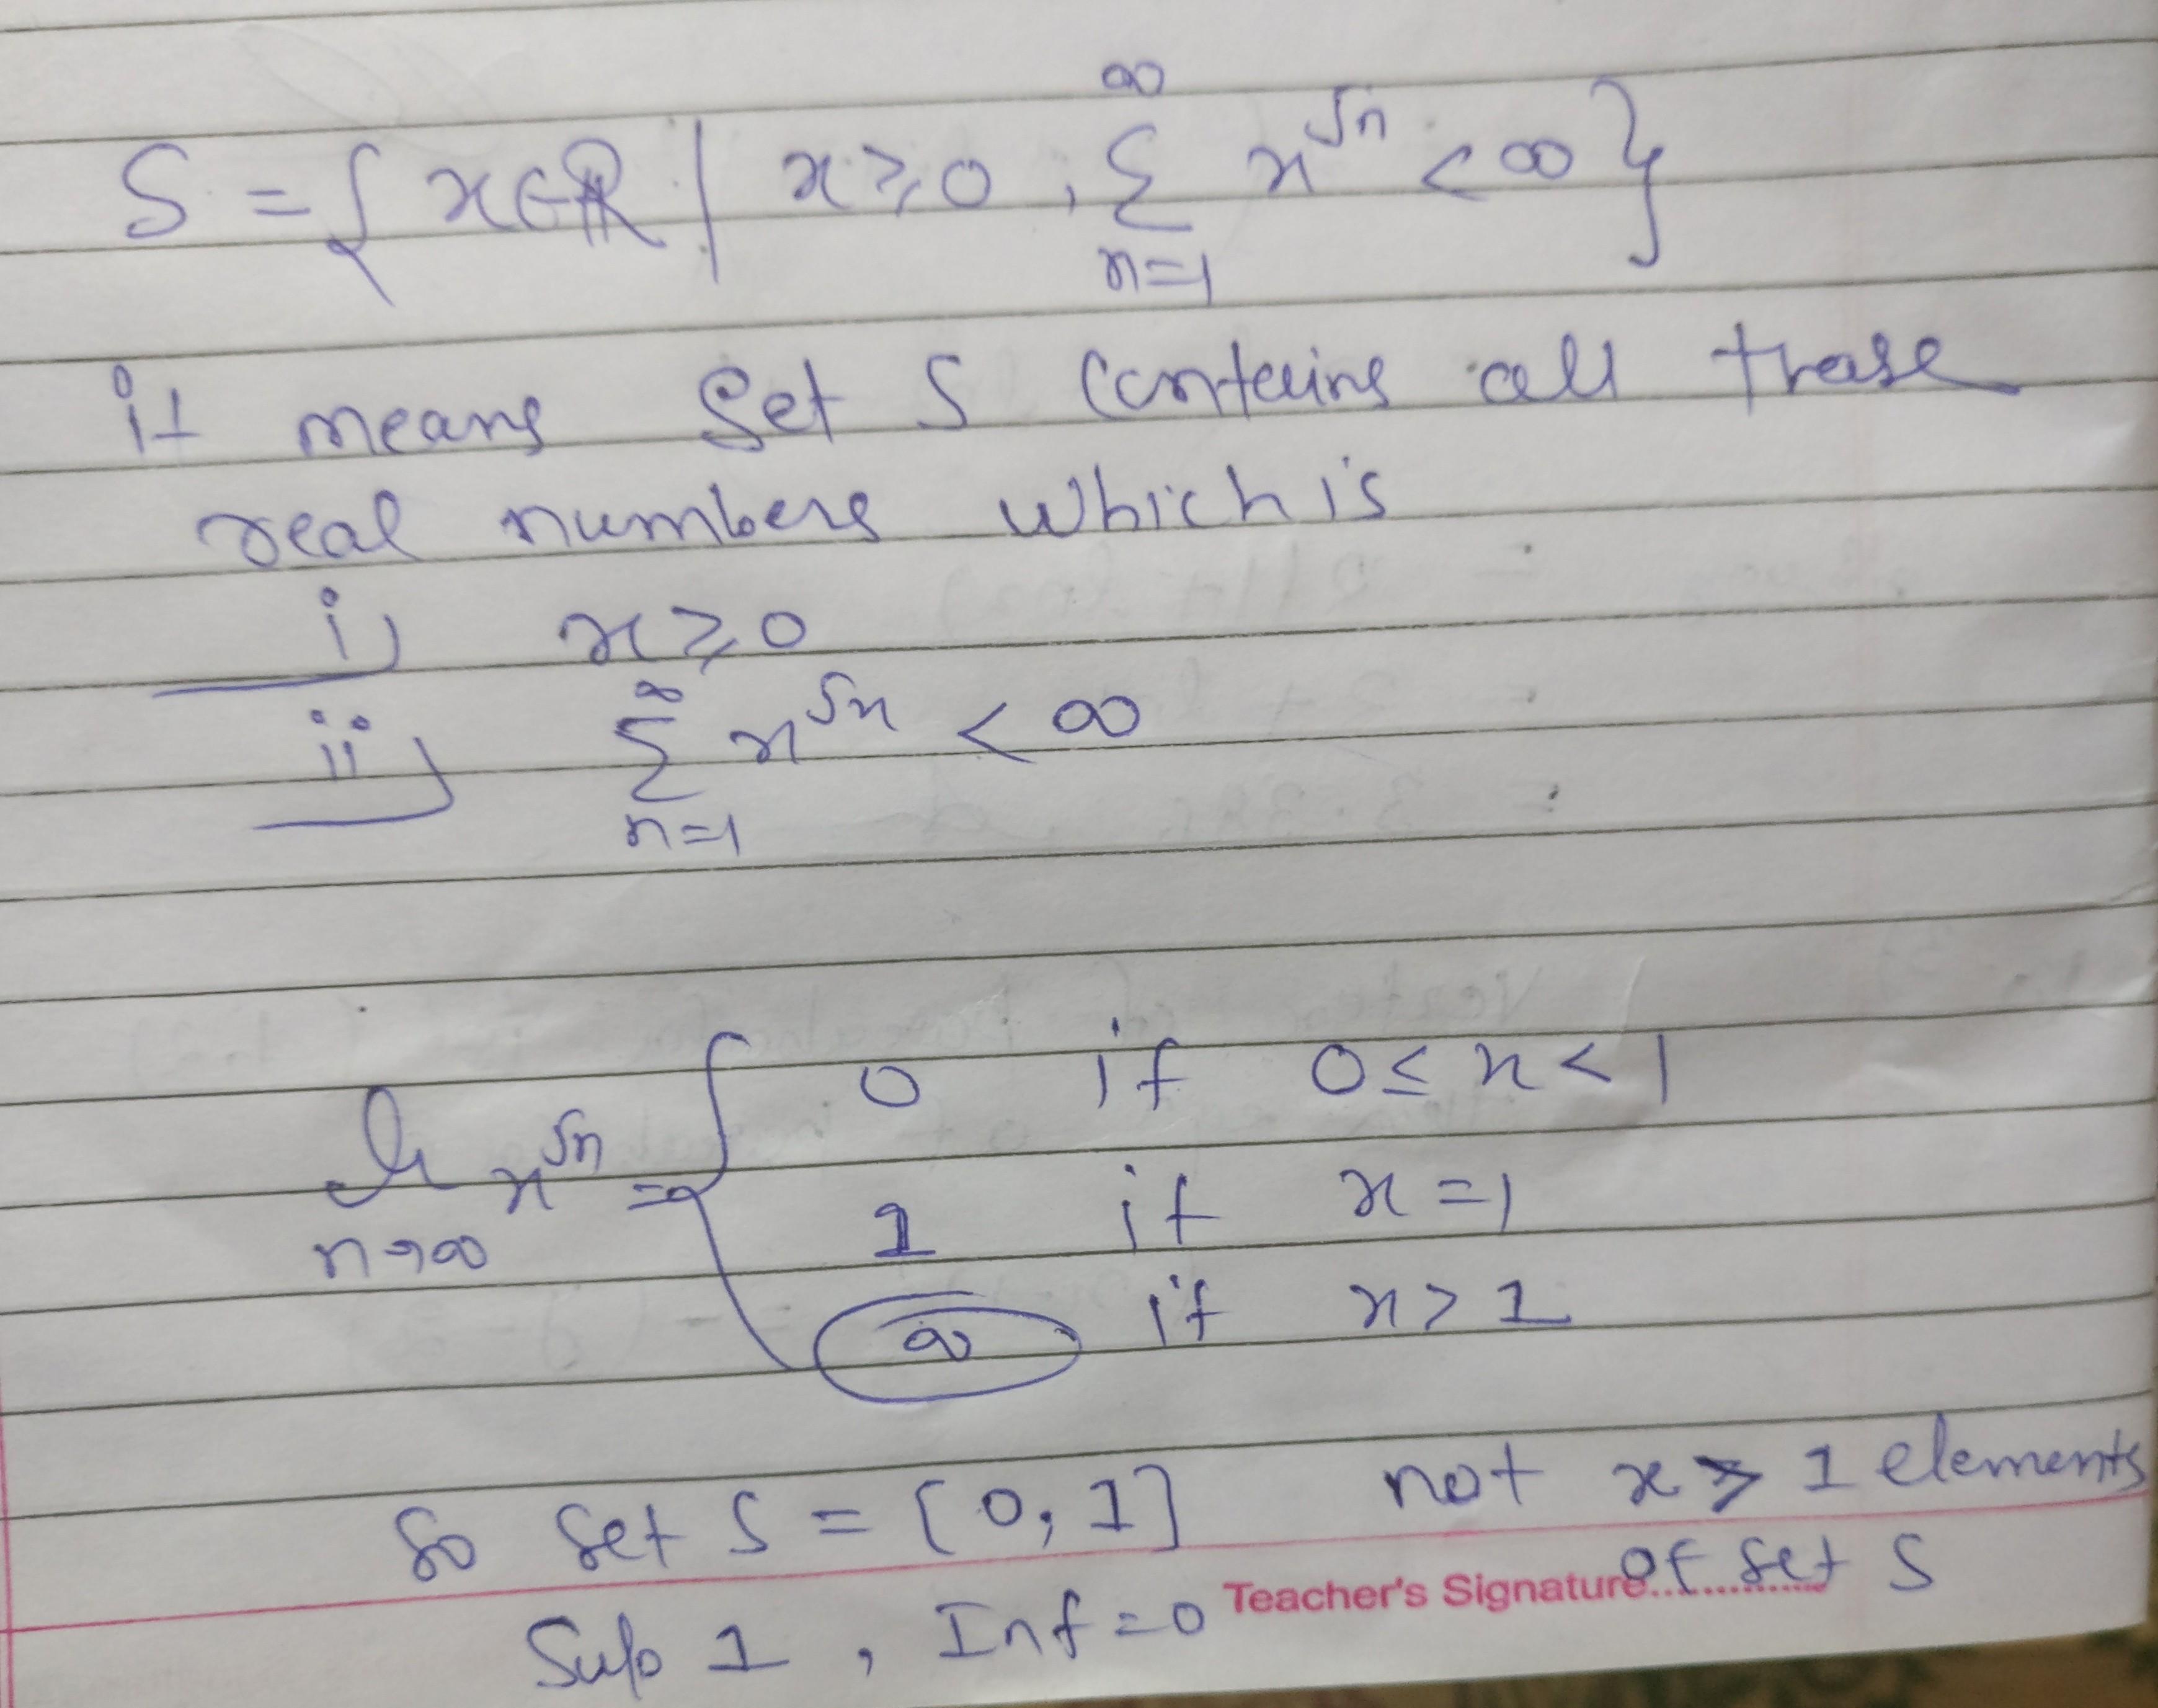 S = { x ∈ ℝ | x ≥ 0 , ∞ Σ n=1 x^√n < ∞ }
it means Set S contains all those
real numbers which is
i) x ≥ 0
ii) ∞ Σ n=1 x^√n < ∞
lim n→∞ x^√n = { 0 if 0 ≤ x < 1
1 if x = 1
∞ if x > 1
So Set S = [0, 1] not x ≥ 1 elements
of Set S
Sup 1 , Inf = 0
Teacher's Signature..............